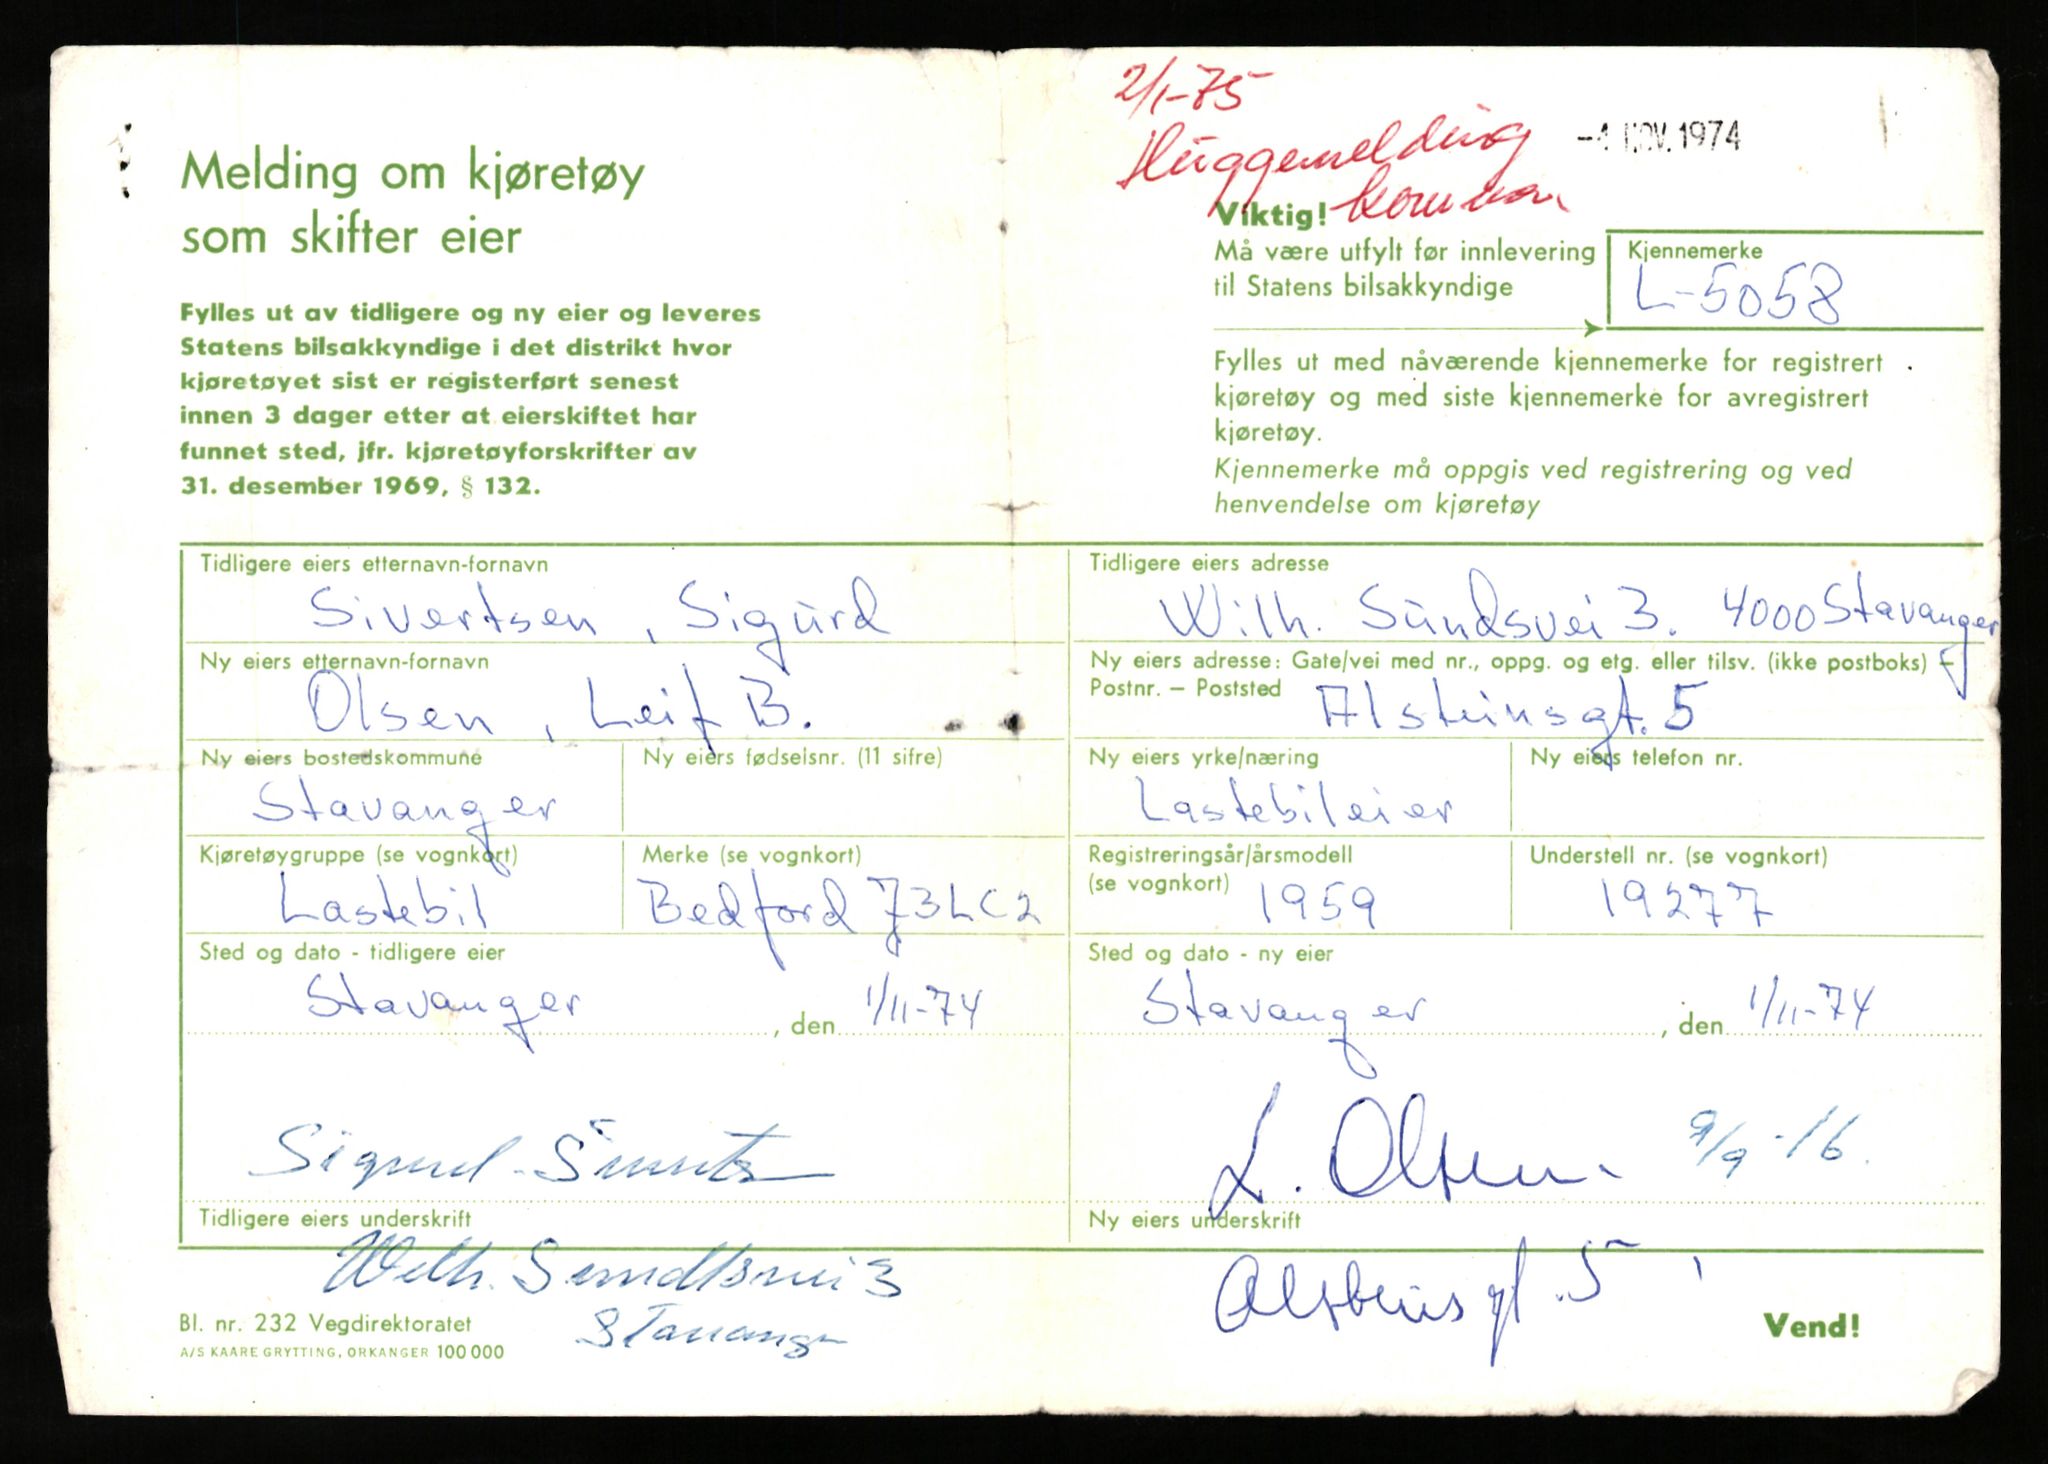 2/1-75
Huggemelding
-4 NOV. 1974
Melding om kjøretøy
som skifter eier
Fylles ut av tidligere og ny eier og leveres
Statens bilsakkyndige i det distrikt hvor
kjøretøyet sist er registerført senest
innen 3 dager etter at eierskiftet har
funnet sted, jfr. kjøretøyforskrifter av
31. desember 1969, § 132.
Viktig!
Må være utfylt før innlevering
til Statens bilsakkyndige
Kjennemerke
L-5058
Fylles ut med nåværende kjennemerke for registrert
kjøretøy og med siste kjennemerke for avregistrert
kjøretøy.
Kjennemerke må oppgis ved registrering og ved
henvendelse om kjøretøy
Tidligere eiers etternavn-fornavn
Sivertsen, Sigurd
Tidligere eiers adresse
Wilh. Sundsvei 3. 4000 Stavanger
Ny eiers etternavn-fornavn
Olsen, Leif B.
Ny eiers adresse: Gate/vei med nr., oppg. og etg. eller tilsv. (ikke postboks) –
Postnr. – Poststed
Alsteinsgt. 5
Ny eiers bostedskommune
Stavanger
Ny eiers fødselsnr. (11 sifre)
Ny eiers yrke/næring
Lastebileier
Ny eiers telefon nr.
Kjøretøygruppe (se vognkort)
Lastebil
Merke (se vognkort)
Bedford J3LC2
Registreringsår/årsmodell
(se vognkort)
1959
Understell nr. (se vognkort)
19277
Sted og dato - tidligere eier
Stavanger, den 1/11-74
Sted og dato - ny eier
Stavanger, den 1/11-74
Sigurd Sivertsen
Tidligere eiers underskrift
L. Olsen. 9/9-16.
Ny eiers underskrift
Wilh. Sundtsvei 3
Stavanger
Alsteinsgt. 5
Bl. nr. 232 Vegdirektoratet
A/S KAARE GRYTTING, ORKANGER 100 000
Vend!